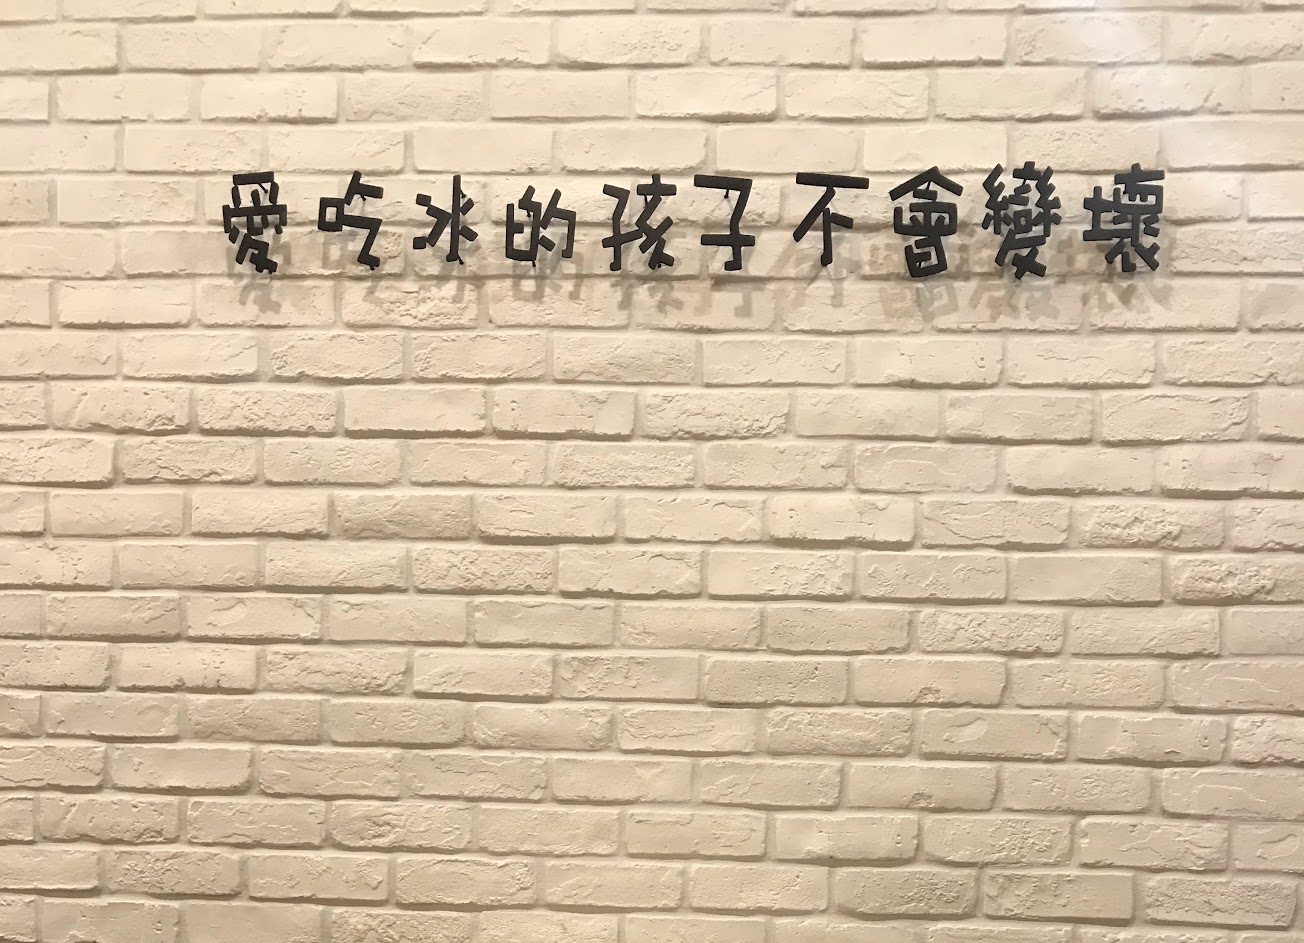 愛吃冰的孩子不會變壞